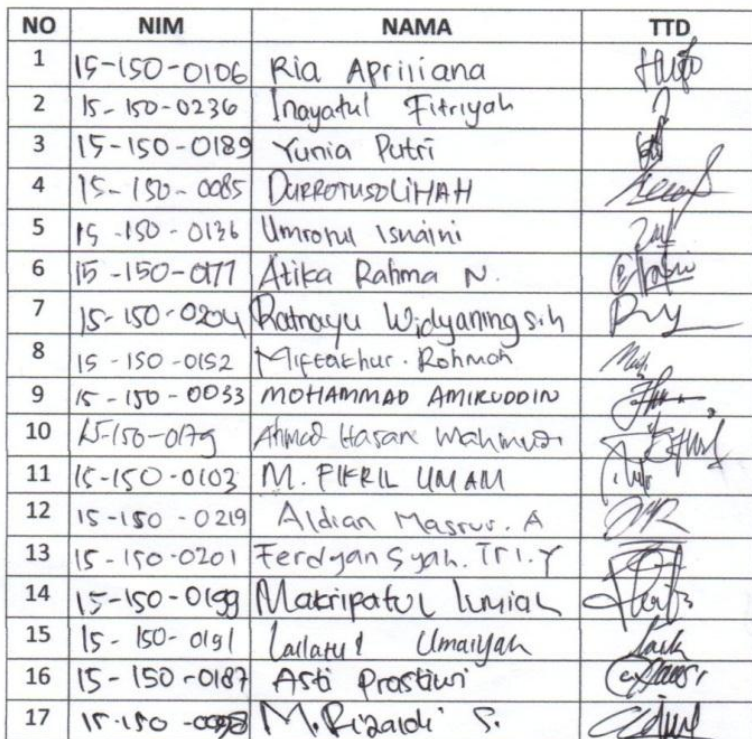 NO NIM NAMA TTD
1 15-150-0106 Ria Apriliana
2 15-150-0236 Inayatul Fitriyah
3 15-150-0189 Yunia Putri
4 15-150-0085 DURROTUSOLIHAH
5 15-150-0136 Umrotul Isnaini
6 15-150-0177 Atika Rahma N.
7 15-150-0204 Ratnayu Widyaningsih
8 15-150-0152 Miftakhur Rohmah
9 15-150-0033 MOHAMMAD AMIRUDDIN
10 15-150-0179 Ahmad Hasan Mahmudi
11 15-150-0103 M. FIKRIL UMAM
12 15-150-0219 Aldian Masrur. A
13 15-150-0201 Ferdyan Syah. Tri. Y
14 15-150-0199 Makripatul
15 15-150-0191 Lailatul Umaiyah
16 15-150-0187 Asti Prastiwi
17 M. Rizaldi S.